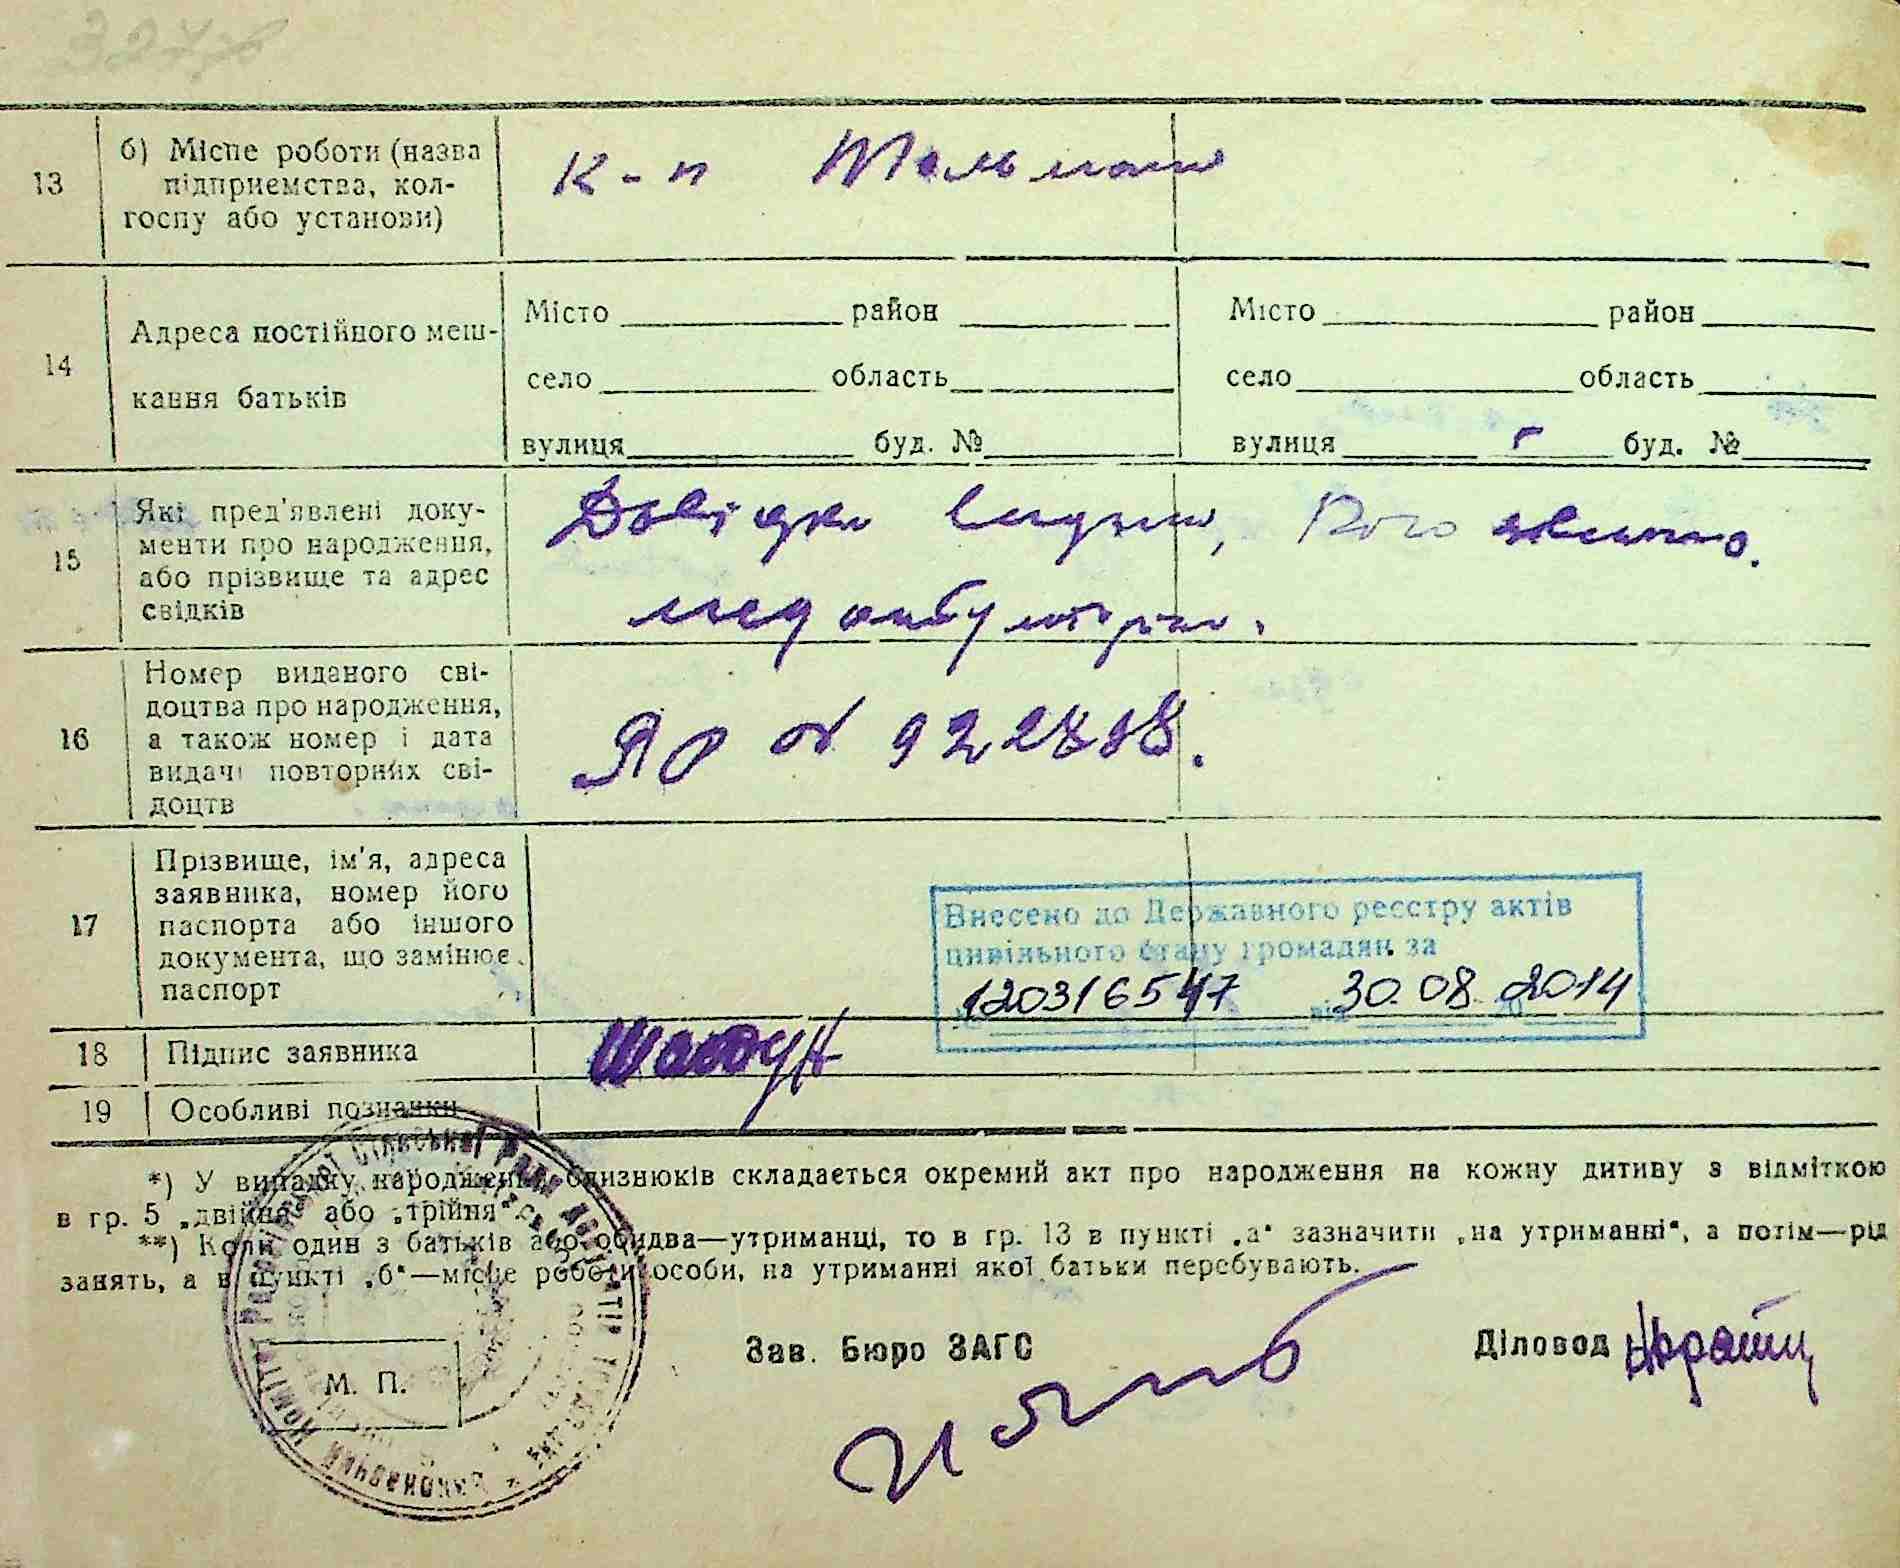 13
б) Місце роботи (назва
підприємства, кол-
госпу або установи)
к-п Тельмана
14
Адреса постійного меш-
кання батьків
Місто район
село область
вулиця буд. №
Місто район
село область
вулиця буд. №
15
Які пред'явлені доку-
менти про народження,
або прізвище та адрес
свідків
Довідка видана,
мед амбулаторією.
16
Номер виданого сві-
доцтва про народження,
а також номер і дата
видачі повторних сві-
доцтв
ЯР № 922788.
17
Прізвище, ім'я, адреса
заявника, номер його
паспорта або іншого
документа, що замінює
паспорт
Внесено до Державного реєстру актів
цивільного стану громадян за
120316547 від 30.08.2014
18
Підпис заявника
19
Особливі позначки
*) У випадку народження близнюків складається окремий акт про народження на кожну дитиву з відміткою
в гр. 5 „двійня“ або „трійня“.
**) Коли один з батьків або обидва—утриманці, то в гр. 13 в пункті „а“ зазначити „на утриманні“, а потім—рід
занять, а в пункті „б“—місце роботи особи, на утриманні якої батьки перебувають.
Зав. Бюро ЗАГС
Діловод
М. П.
Виконавчий Комітет Сільської Ради Депутатів Трудящих